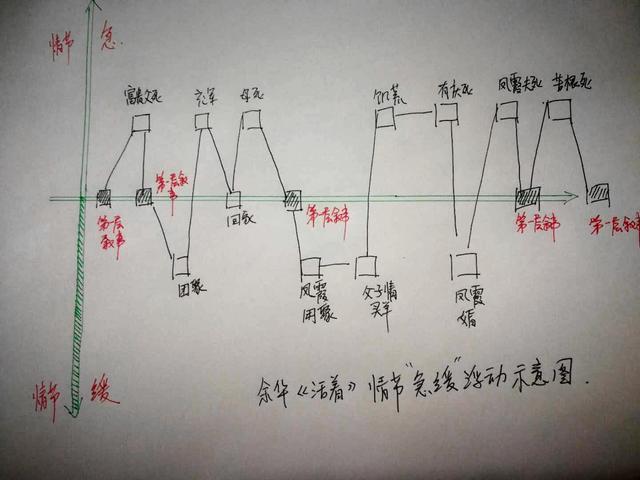 情节 急.
富贵父死
充军
母死
饥荒
有庆死
凤霞夫死
苦根死
第一层
叙事
第一层叙
事
回家
第一层叙事
第一层叙事
第一层叙事
团聚
凤霞
父子情
买羊
凤霞
婚
情节 缓
余华《活着》情节"急缓"浮动示意图.